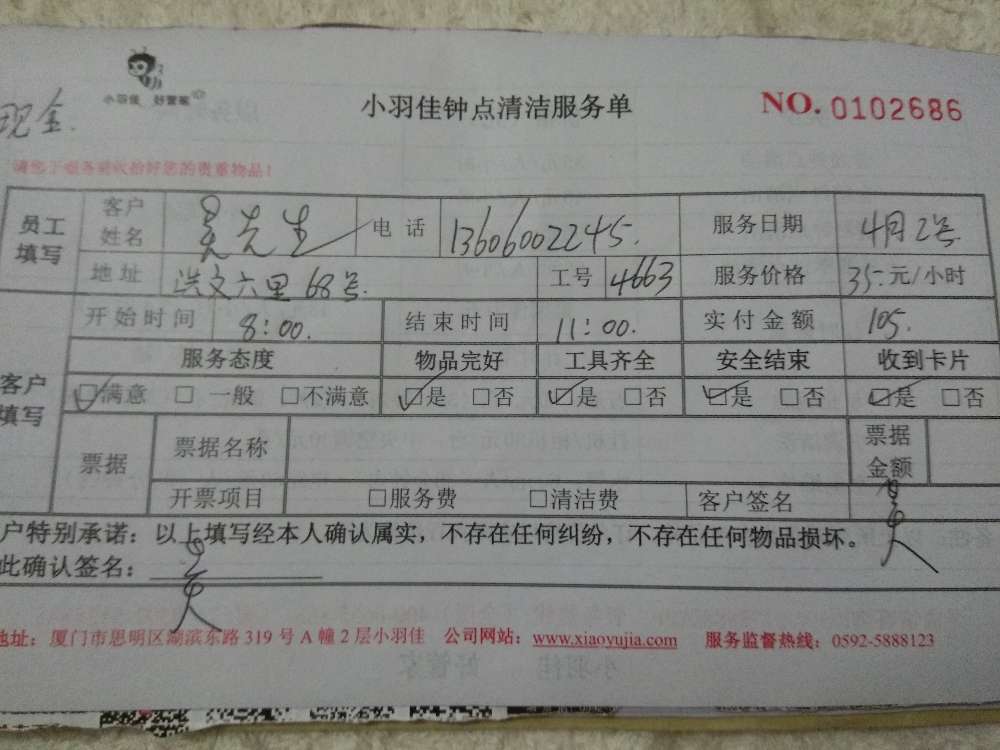 小羽佳 好管家
现金.
小羽佳钟点清洁服务单
NO. 0102686
请您于服务前收拾好您的贵重物品！
员工填写 客户姓名 吴先生 电话 13606002245. 服务日期 4月2号
地址 洪文六里68号. 工号 4663 服务价格 35.元/小时
开始时间 8:00. 结束时间 11:00. 实付金额 105.
客户填写 服务态度 物品完好 工具齐全 安全结束 收到卡片
☑满意 □ 一般 □不满意 ☑是 □否 ☑是 □否 ☑是 □否 ☑是 □否
票据 票据名称 票据金额
开票项目 □服务费 □清洁费 客户签名
户特别承诺：以上填写经本人确认属实，不存在任何纠纷，不存在任何物品损坏。
此确认签名：
地址：厦门市思明区湖滨东路 319 号 A 幢 2 层小羽佳 公司网站：www.xiaoyujia.com 服务监督热线：0592-5888123